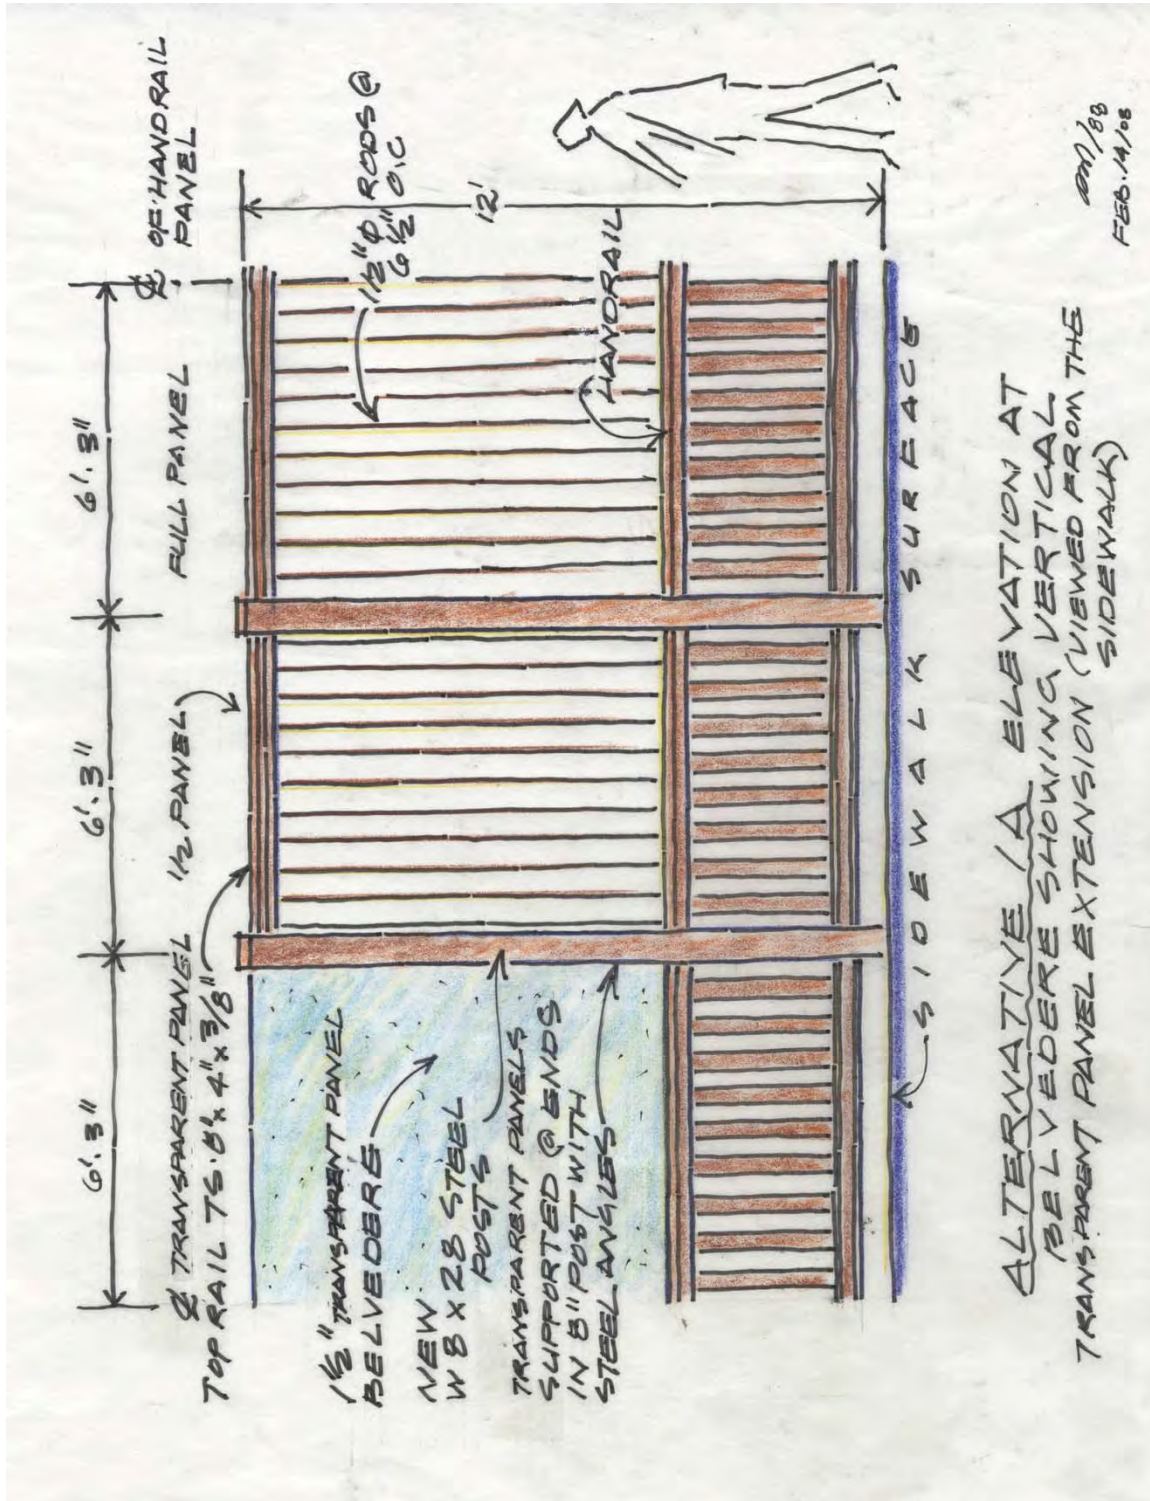 6'.3"
6'.3"
6'.3"
℄ TRANSPARENT PANEL
1/2 PANEL
FULL PANEL
℄ OF HANDRAIL
PANEL
TOP RAIL TS·8"x 4"x 3/8"
1 1/2" TRANSPARENT PANEL
BELVEDERE
NEW
W 8 X 28 STEEL
POSTS
TRANSPARENT PANELS
SUPPORTED @ ENDS
IN 8" POST WITH
STEEL ANGLES
1 1/2" Ø RODS @
6 1/2" O.C
12'
HANDRAIL
SIDEWALK SURFACE
ALTERNATIVE 1A ELEVATION AT
BELVEDERE SHOWING VERTICAL
TRANSPARENT PANEL EXTENSION (VIEWED FROM THE
SIDEWALK)
FEB.14/08